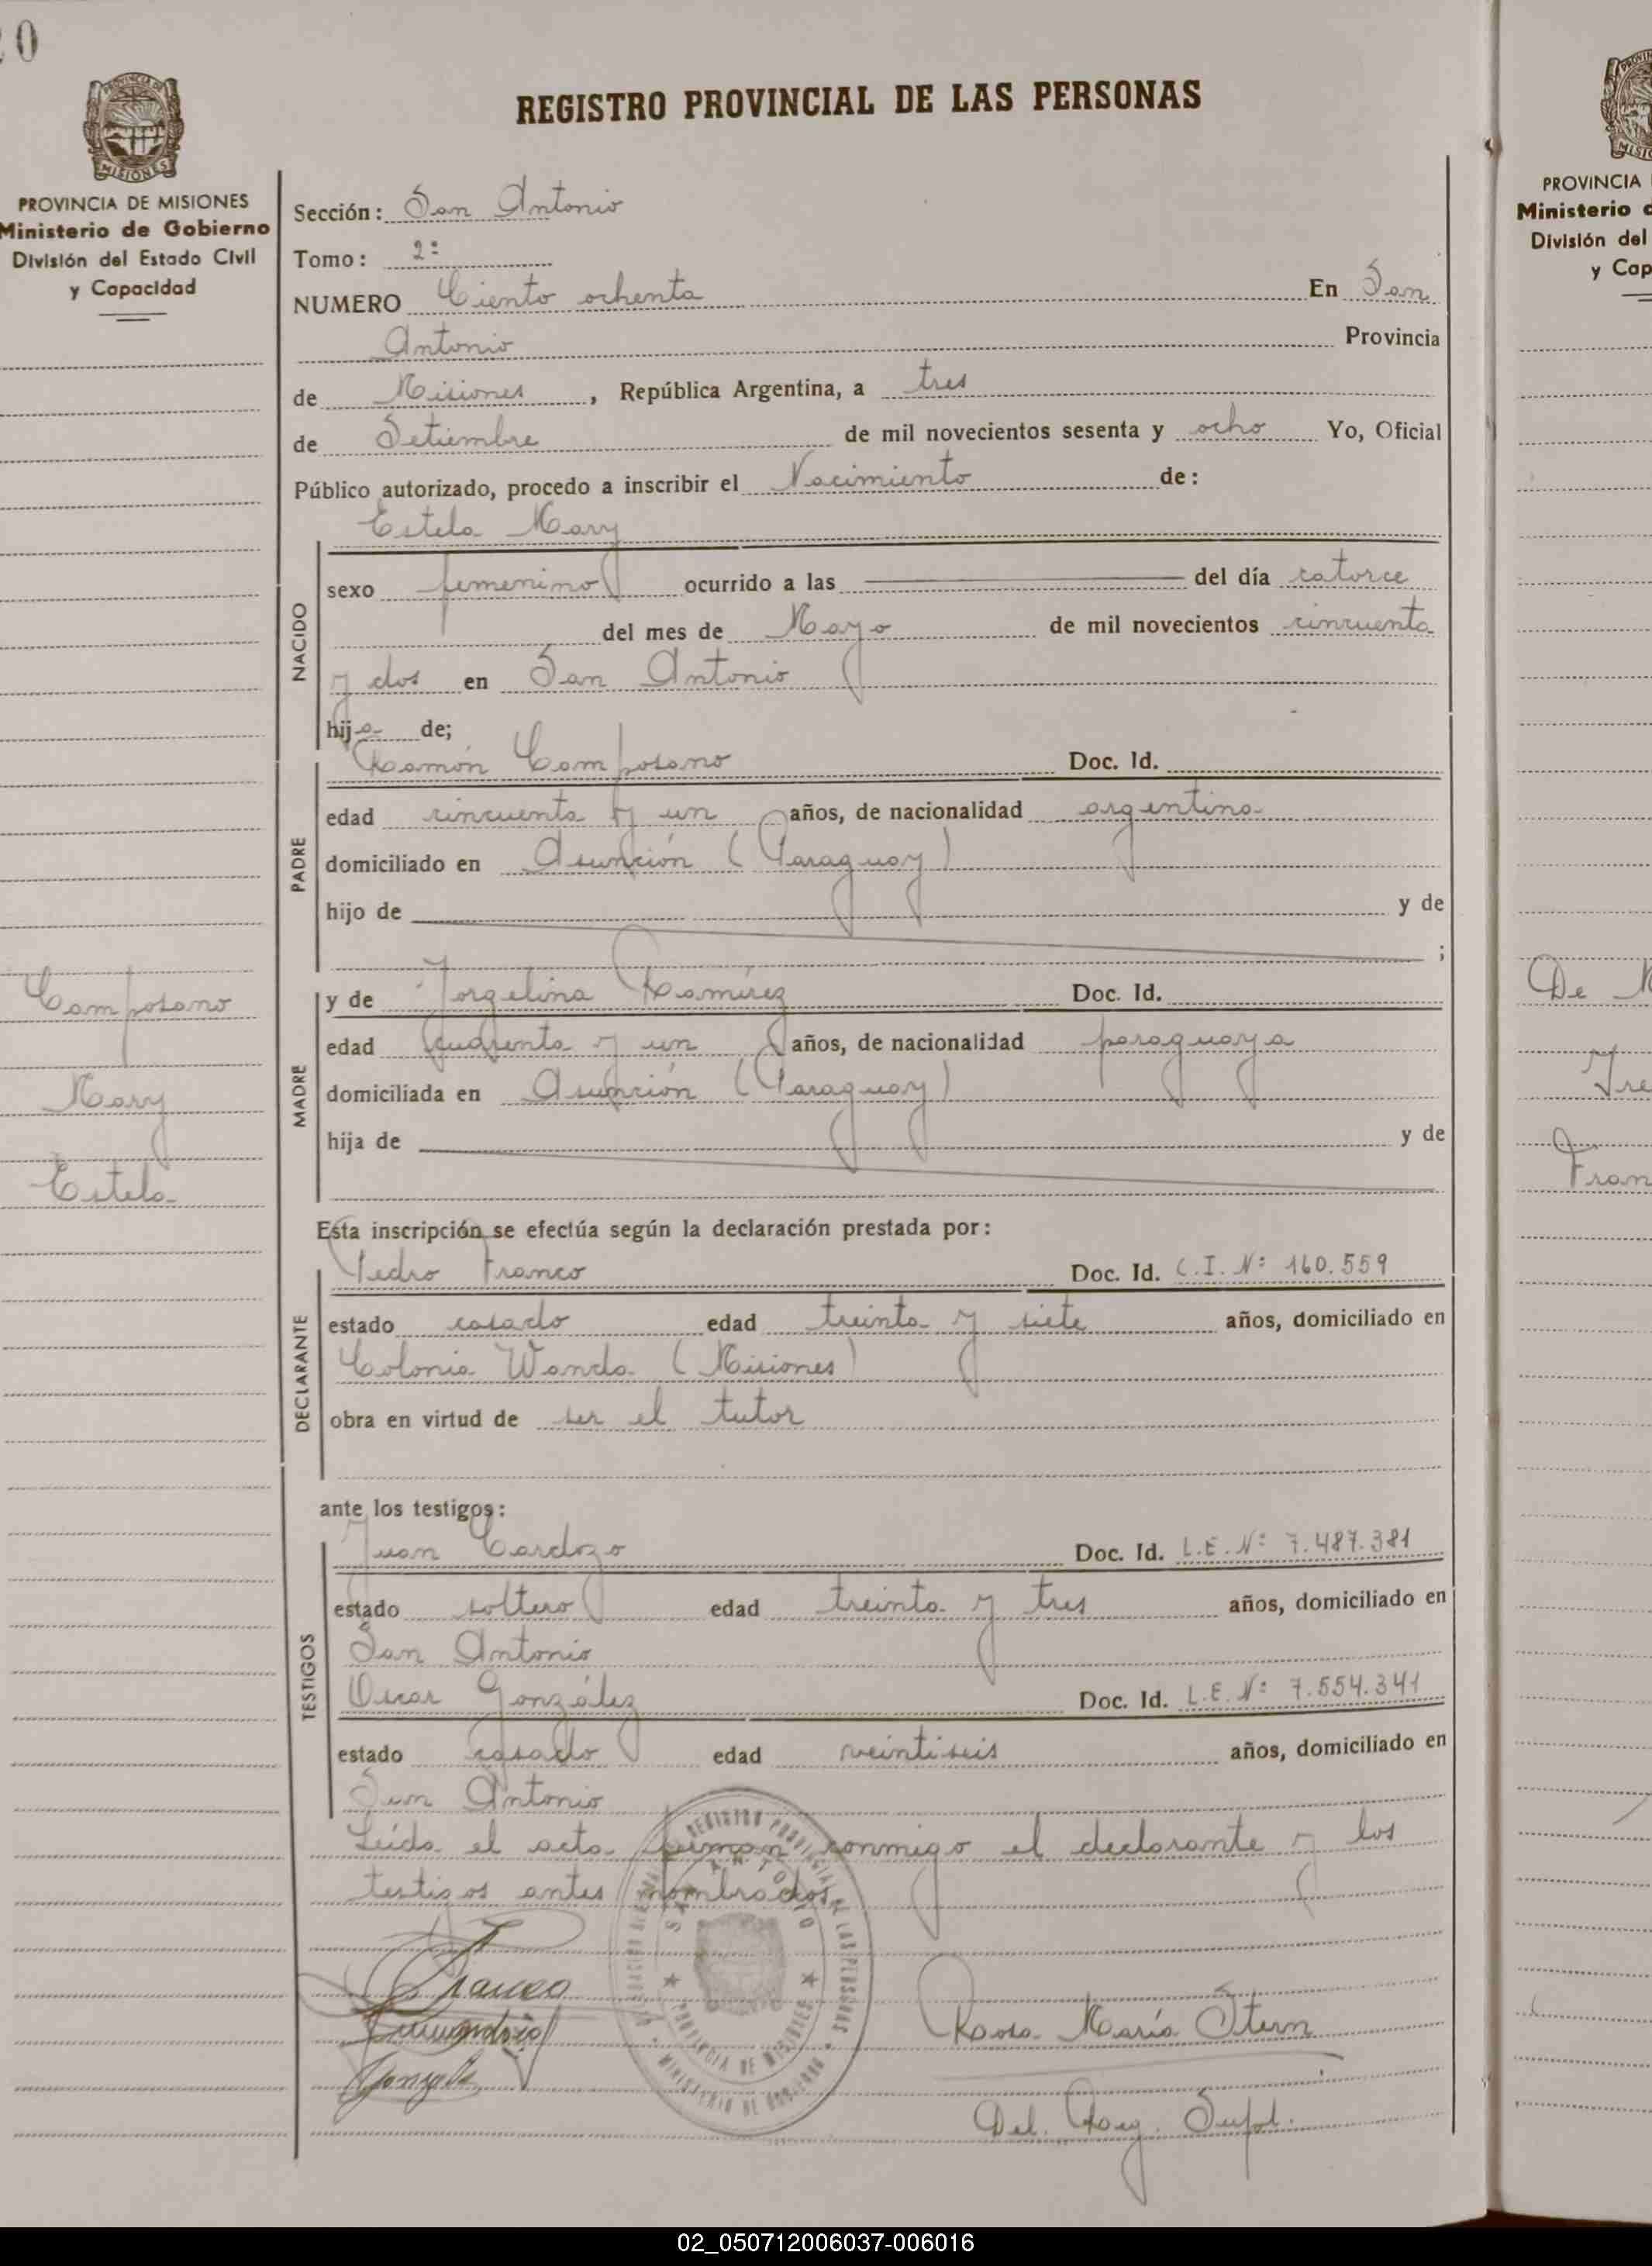 0
REGISTRO PROVINCIAL DE LAS PERSONAS
MISIONES
PROVINCIA DE MISIONES
Ministerio de Gobierno
División del Estado Civil
y Capacidad
Sección: San Antonio
Tomo: 2º
NUMERO Ciento ochenta En San
Antonio Provincia
de Misiones, República Argentina, a tres
de Setiembre de mil novecientos sesenta y ocho Yo, Oficial
Público autorizado, procedo a inscribir el Nacimiento de:
Estela Mary
NACIDO
sexo femenino ocurrido a las del día catorce
del mes de Mayo de mil novecientos cincuenta
y dos en San Antonio
hija de;
PADRE
Ramón Camposano Doc. Id.
edad cincuenta y un años, de nacionalidad argentina
domiciliado en Asunción (Paraguay)
hijo de y de
;
MADRE
y de Jorgelina Ramírez Doc. Id.
edad cuarenta y un años, de nacionalidad paraguaya
domiciliada en Asunción (Paraguay)
hija de y de
Camposano
Mary
Estela
Esta inscripción se efectúa según la declaración prestada por:
DECLARANTE
Pedro Franco Doc. Id. C.I. Nº 160.559
estado casado edad treinta y siete años, domiciliado en
Colonia Wanda (Misiones)
obra en virtud de ser el tutor
ante los testigos:
TESTIGOS
Juan Cardozo Doc. Id. L.E. Nº 7.487.381
estado soltero edad treinta y tres años, domiciliado en
San Antonio
Oscar González Doc. Id. L.E. Nº 7.554.341
estado casado edad veintiseis años, domiciliado en
San Antonio
Leída el acta firman conmigo el declarante y los
testigos antes nombrados
REGISTRO PROVINCIAL DE LAS PERSONAS
SAN ANTONIO
PROVINCIA DE MISIONES
MINISTERIO DE GOBIERNO
Franco
Rosa María Stern
Del. Reg. Supl.
PROVINCIA
Ministerio
División del
y Cap
De
Fran
02_050712006037-006016